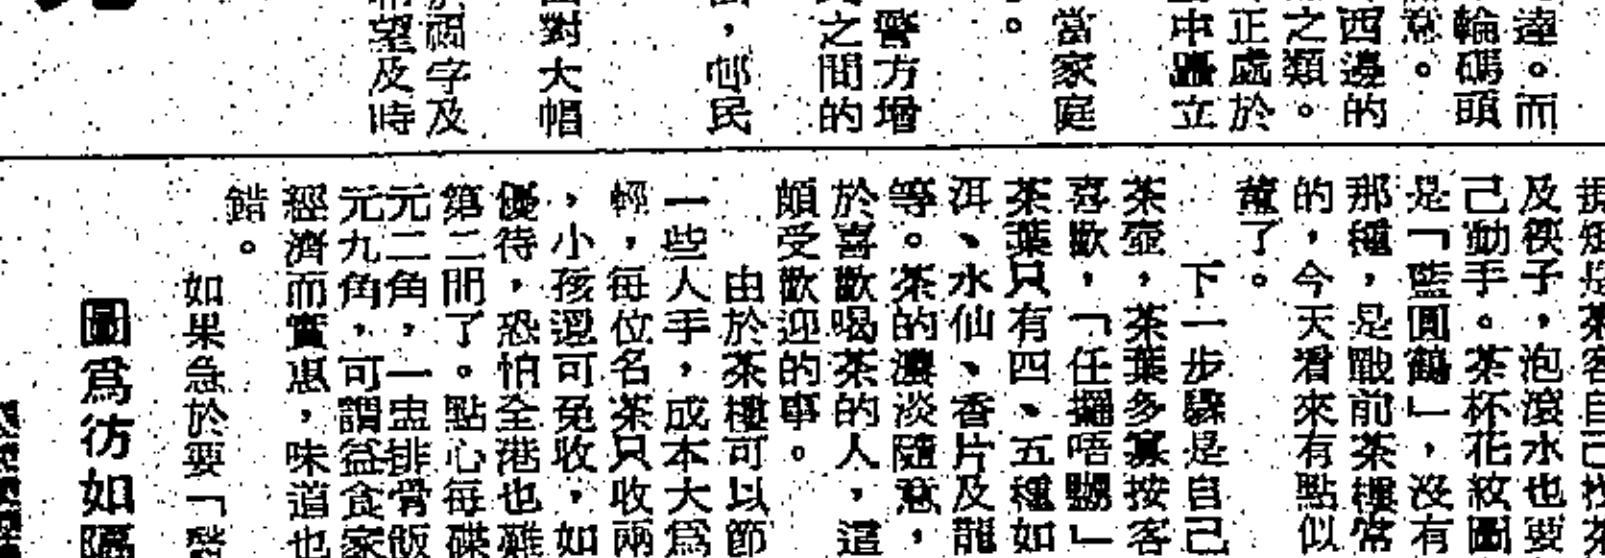 達。而
輪碼頭
意。
西邊的
之類。
正處於
中矗立
當家庭
。
警方增
之間的
,邨民
對大幅
兩字及
望及時
及筷子,泡滾水也要
己動手。茶杯花紋圖
是「藍圓鶴」,沒有
那種,是戰前茶樓常
的,今天看來有點似
董了。
下一步驟是自己
茶壺,茶葉多寡按客
喜歡,「任擺唔嬲」
茶葉只有四、五種如
洱、水仙、香片及龍
等。茶的濃淡隨意,
於喜歡喝茶的人,這
頗受歡迎的事。
由於茶樓可以節
一些人手,成本大為
輕,每位名茶只收兩
,小孩還可免收,如
優待,恐怕全港也難
第二間了。點心每碟
元二角,一盅排骨飯
元九角,可謂益食家
經濟而實惠,味道也
錯。
如果急於要「醫
圖為彷如隔